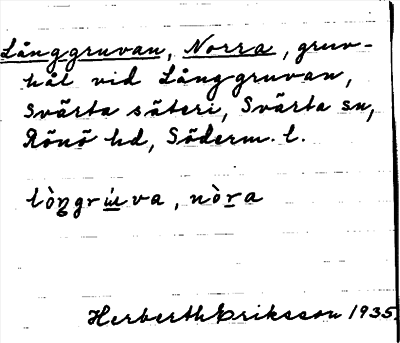 Långgruvan, Norra, gruv-
hål vid Långgruvan,
Svärta säteri, Svärta sn,
Rönö hd, Söderm. l.
lòŋgrúva, nòra
Herberth Eriksson 1935.